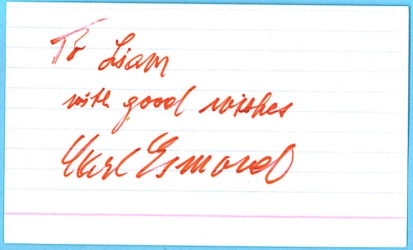 To Liam
with good wishes
Carl Esmond